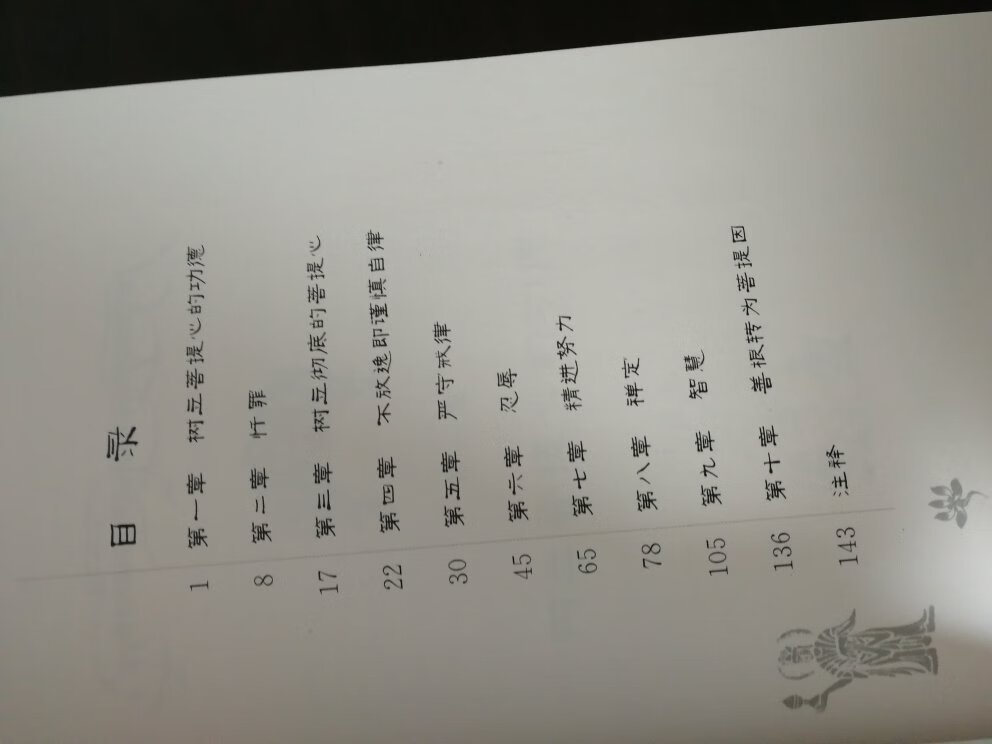 目 录
1 第一章 树立菩提心的功德
8 第二章 忏罪
17 第三章 树立彻底的菩提心
22 第四章 不放逸即谨慎自律
30 第五章 严守戒律
45 第六章 忍辱
65 第七章 精进努力
78 第八章 禅定
105 第九章 智慧
136 第十章 善根转为菩提因
143 注释